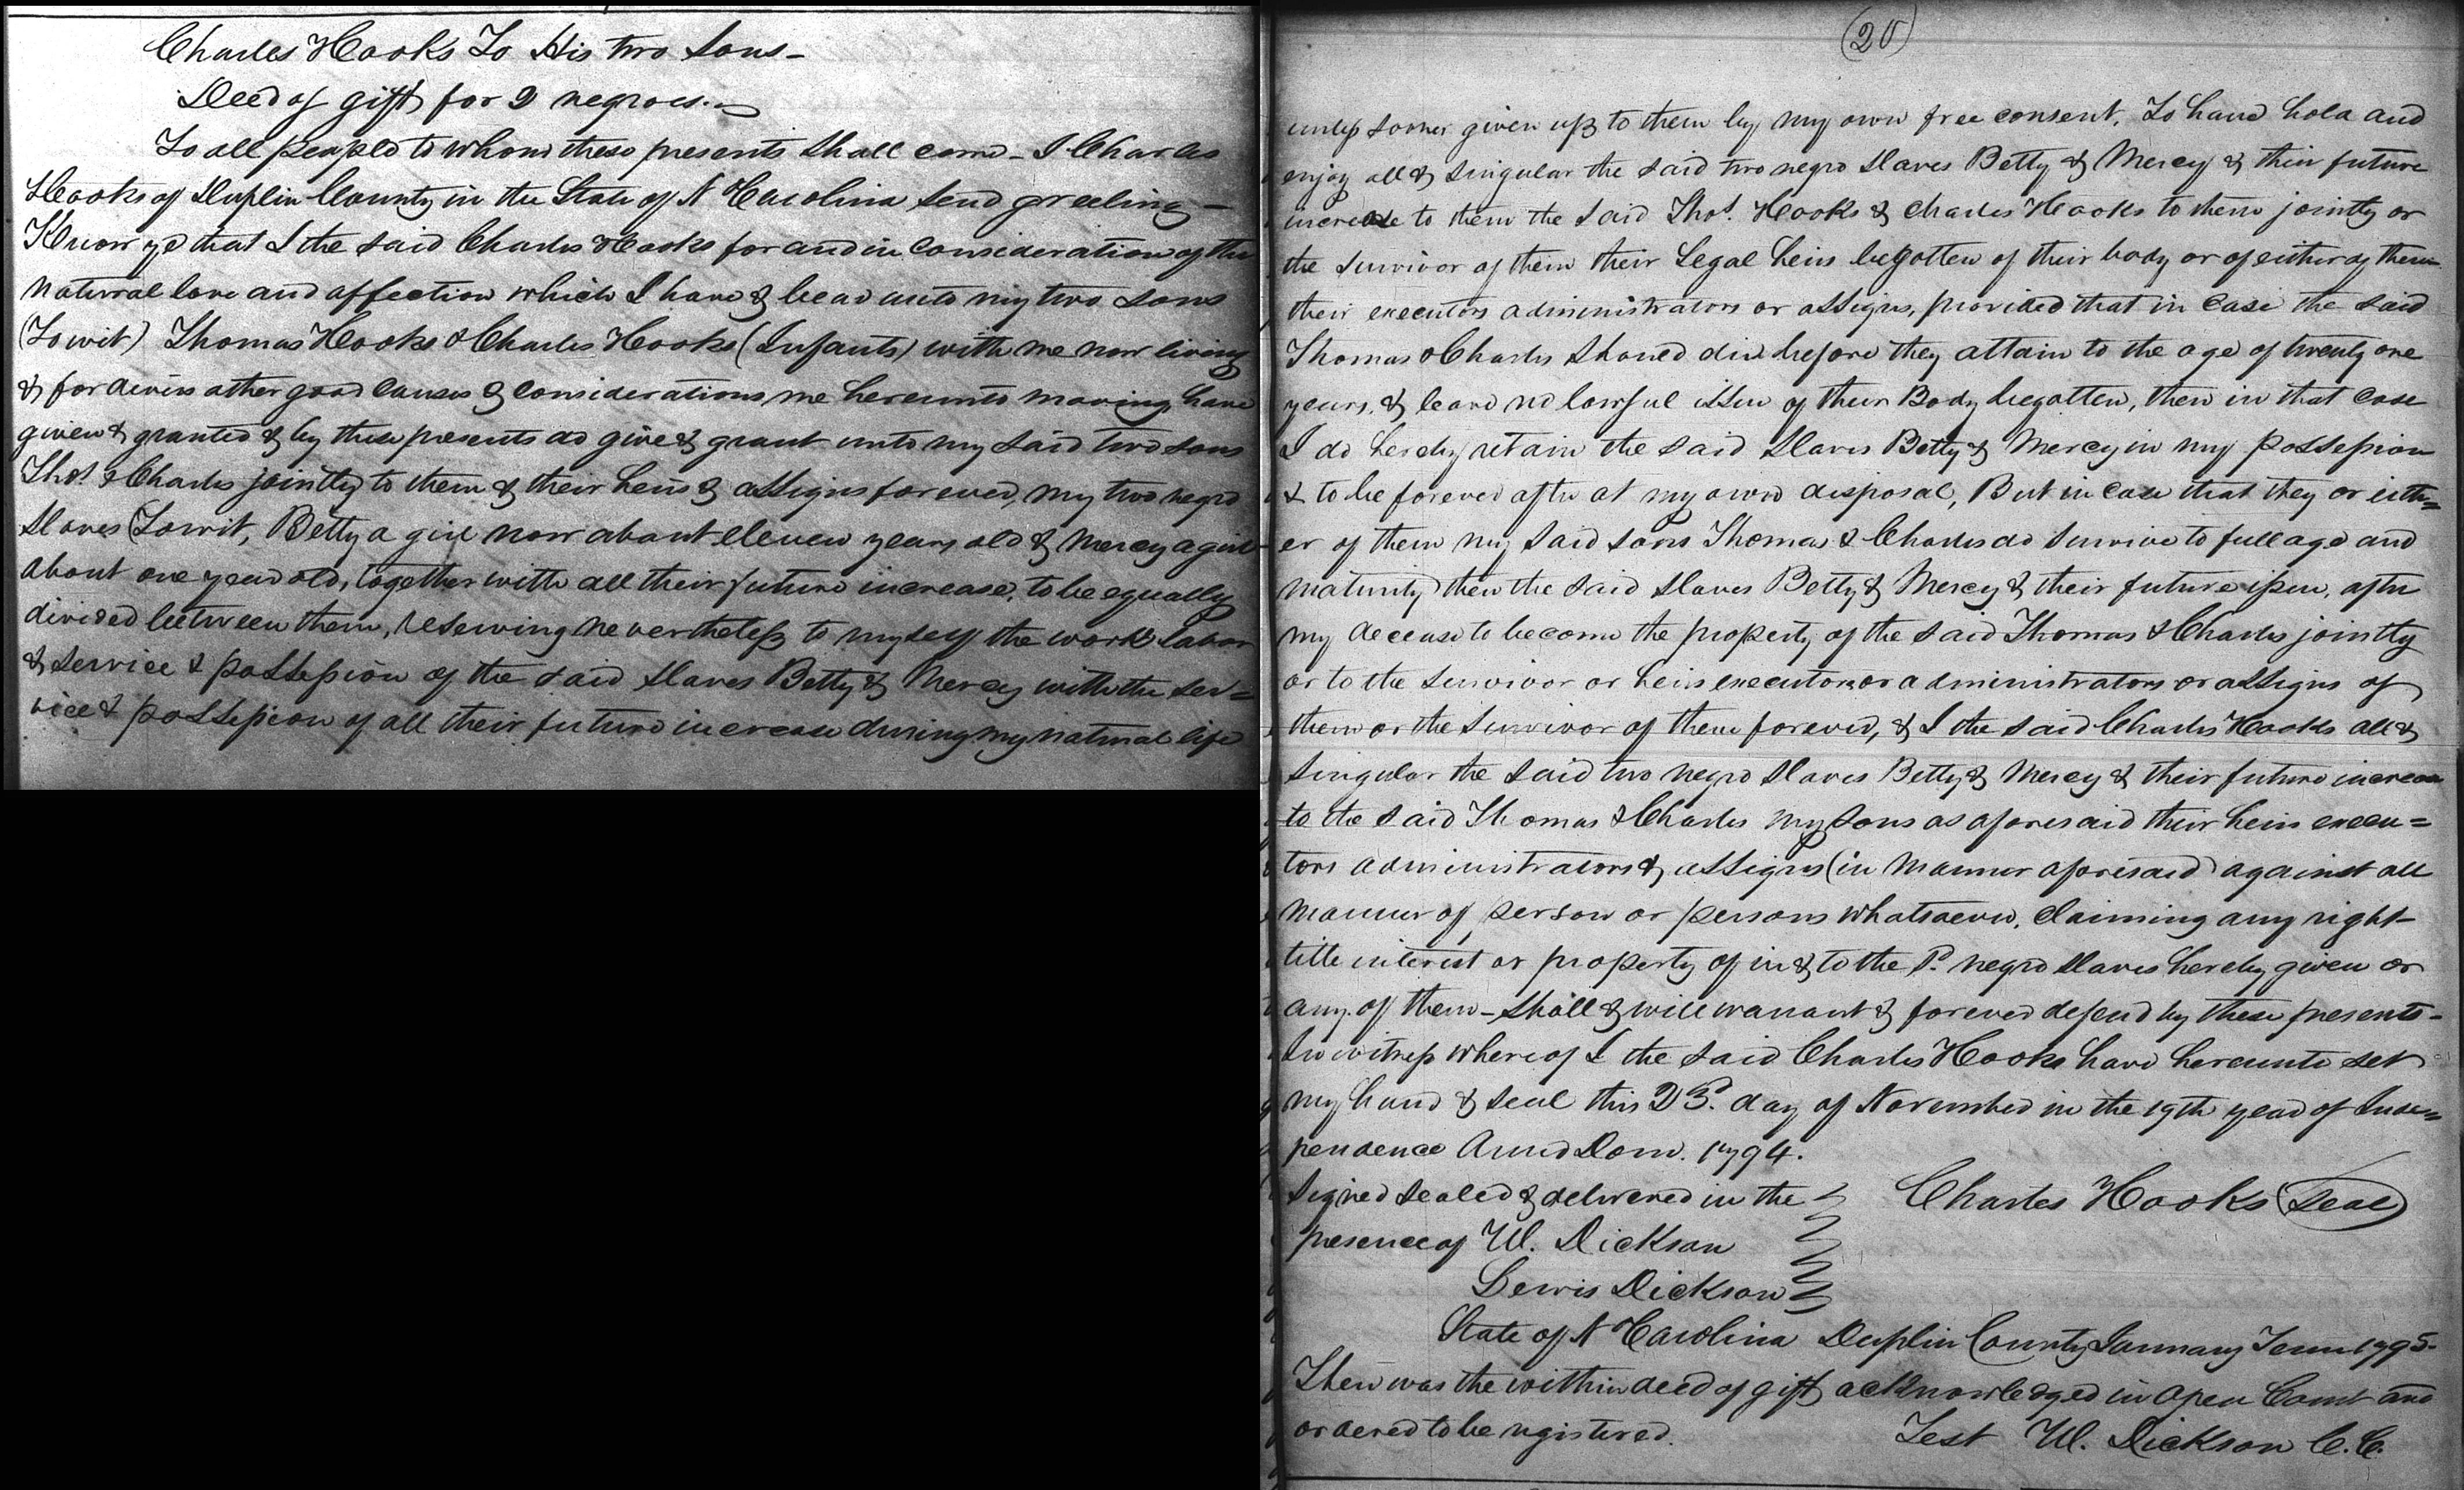 Charles Hooks To His two Sons -
Deed of gift for 2 negroes. -
To all people to whom these presents shall come - I Charles
Hooks of Duplin County in the State of N Carolina send greeting -
Know ye that I the said Charles Hooks for and in consideration of the
natural love and affection which I have & bear unto my two sons
(Towit) Thomas Hooks & Charles Hooks (Infants) with me now living
& for divers other good causes & considerations me hereunto moving, have
given & granted & by these presents do give & grant unto my said two sons
Thos. & Charles jointly to them & their heirs & assigns forever, my two negro
slaves (Towit, Betty a girl now about eleven years old & Mercy a girl
about one year old, together with all their future increase, to be equally
divided between them, reserving nevertheless to myself the work labor
& service & possession of the said slaves Betty & Mercy with the ser=
vice & possession of all their future increase during my natural life
(20)
unless sooner given up to them by my own free consent. To have hold and
enjoy all & singular the said two negro slaves Betty & Mercy & their future
increase to them the said Thos. Hooks & Charles Hooks to them jointly or
the survivor of them their Legal heirs begotten of their body or of either of them
their executors administrators or assigns, provided that in case the said
Thomas & Charles should die before they attain to the age of twenty one
years, & leave no lawful issue of their Body begotten, then in that case
I do hereby retain the said slaves Betty & Mercy in my possession
& to be forever after at my own disposal, But in case that they or eith=
er of them my said sons Thomas & Charles do survive to full age and
maturity then the said slaves Betty & Mercy & their future issue, after
my decease to become the property of the said Thomas & Charles jointly
or to the survivor or heirs executors or administrators or assigns of
them or the survivor of them forever, & I the said Charles Hooks all &
singular the said two negro slaves Betty & Mercy & their future increase
to the said Thomas & Charles my sons as aforesaid their heirs execu=
tors administrators & assigns (in manner aforesaid) against all
manner of person or persons whatsoever, claiming any right
title interest or property of in & to the sd. negro slaves hereby given or
any of them - shall & will warrant & forever defend by these presents -
In witness whereof I the said Charles Hooks have hereunto set
my hand & seal this 23d. day of November in the 19th year of Inde=
pendence Anno Dom. 1794.
Signed sealed & delivered in the Charles Hooks (seal)
presence of W. Dickson
Lewis Dickson
State of N Carolina Duplin County January Term 1795.
Then was the within deed of gift acknowledged in open Court and
ordered to be registered. Test W. Dickson C.C.